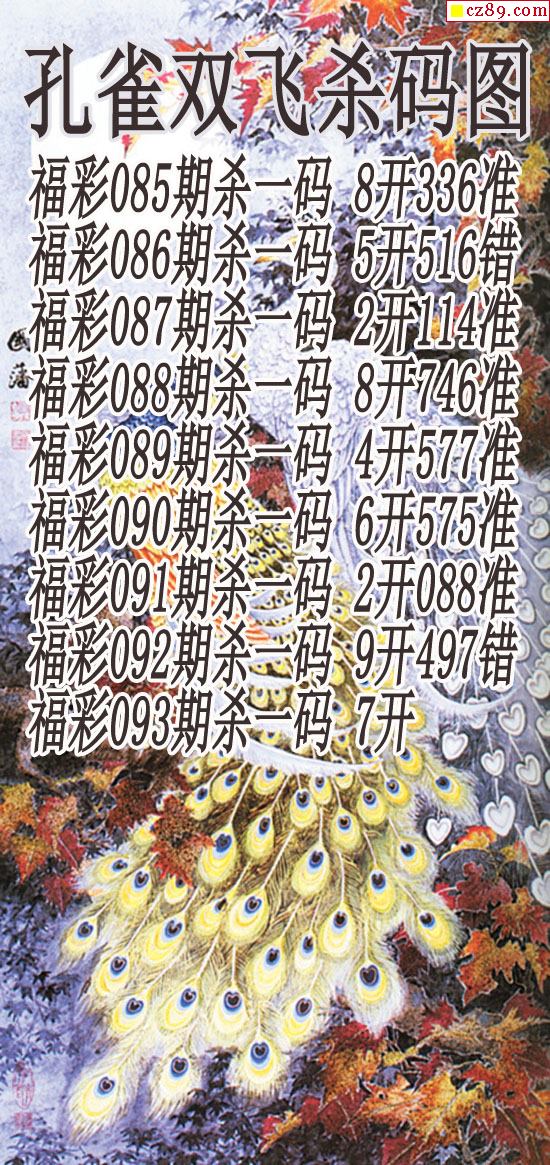 cz89.com
孔雀双飞杀码图
福彩085期杀一码 8开336准
福彩086期杀一码 5开516错
福彩087期杀一码 2开114准
福彩088期杀一码 8开746准
福彩089期杀一码 4开577准
福彩090期杀一码 6开575准
福彩091期杀一码 2开088准
福彩092期杀一码 9开497错
福彩093期杀一码 7开